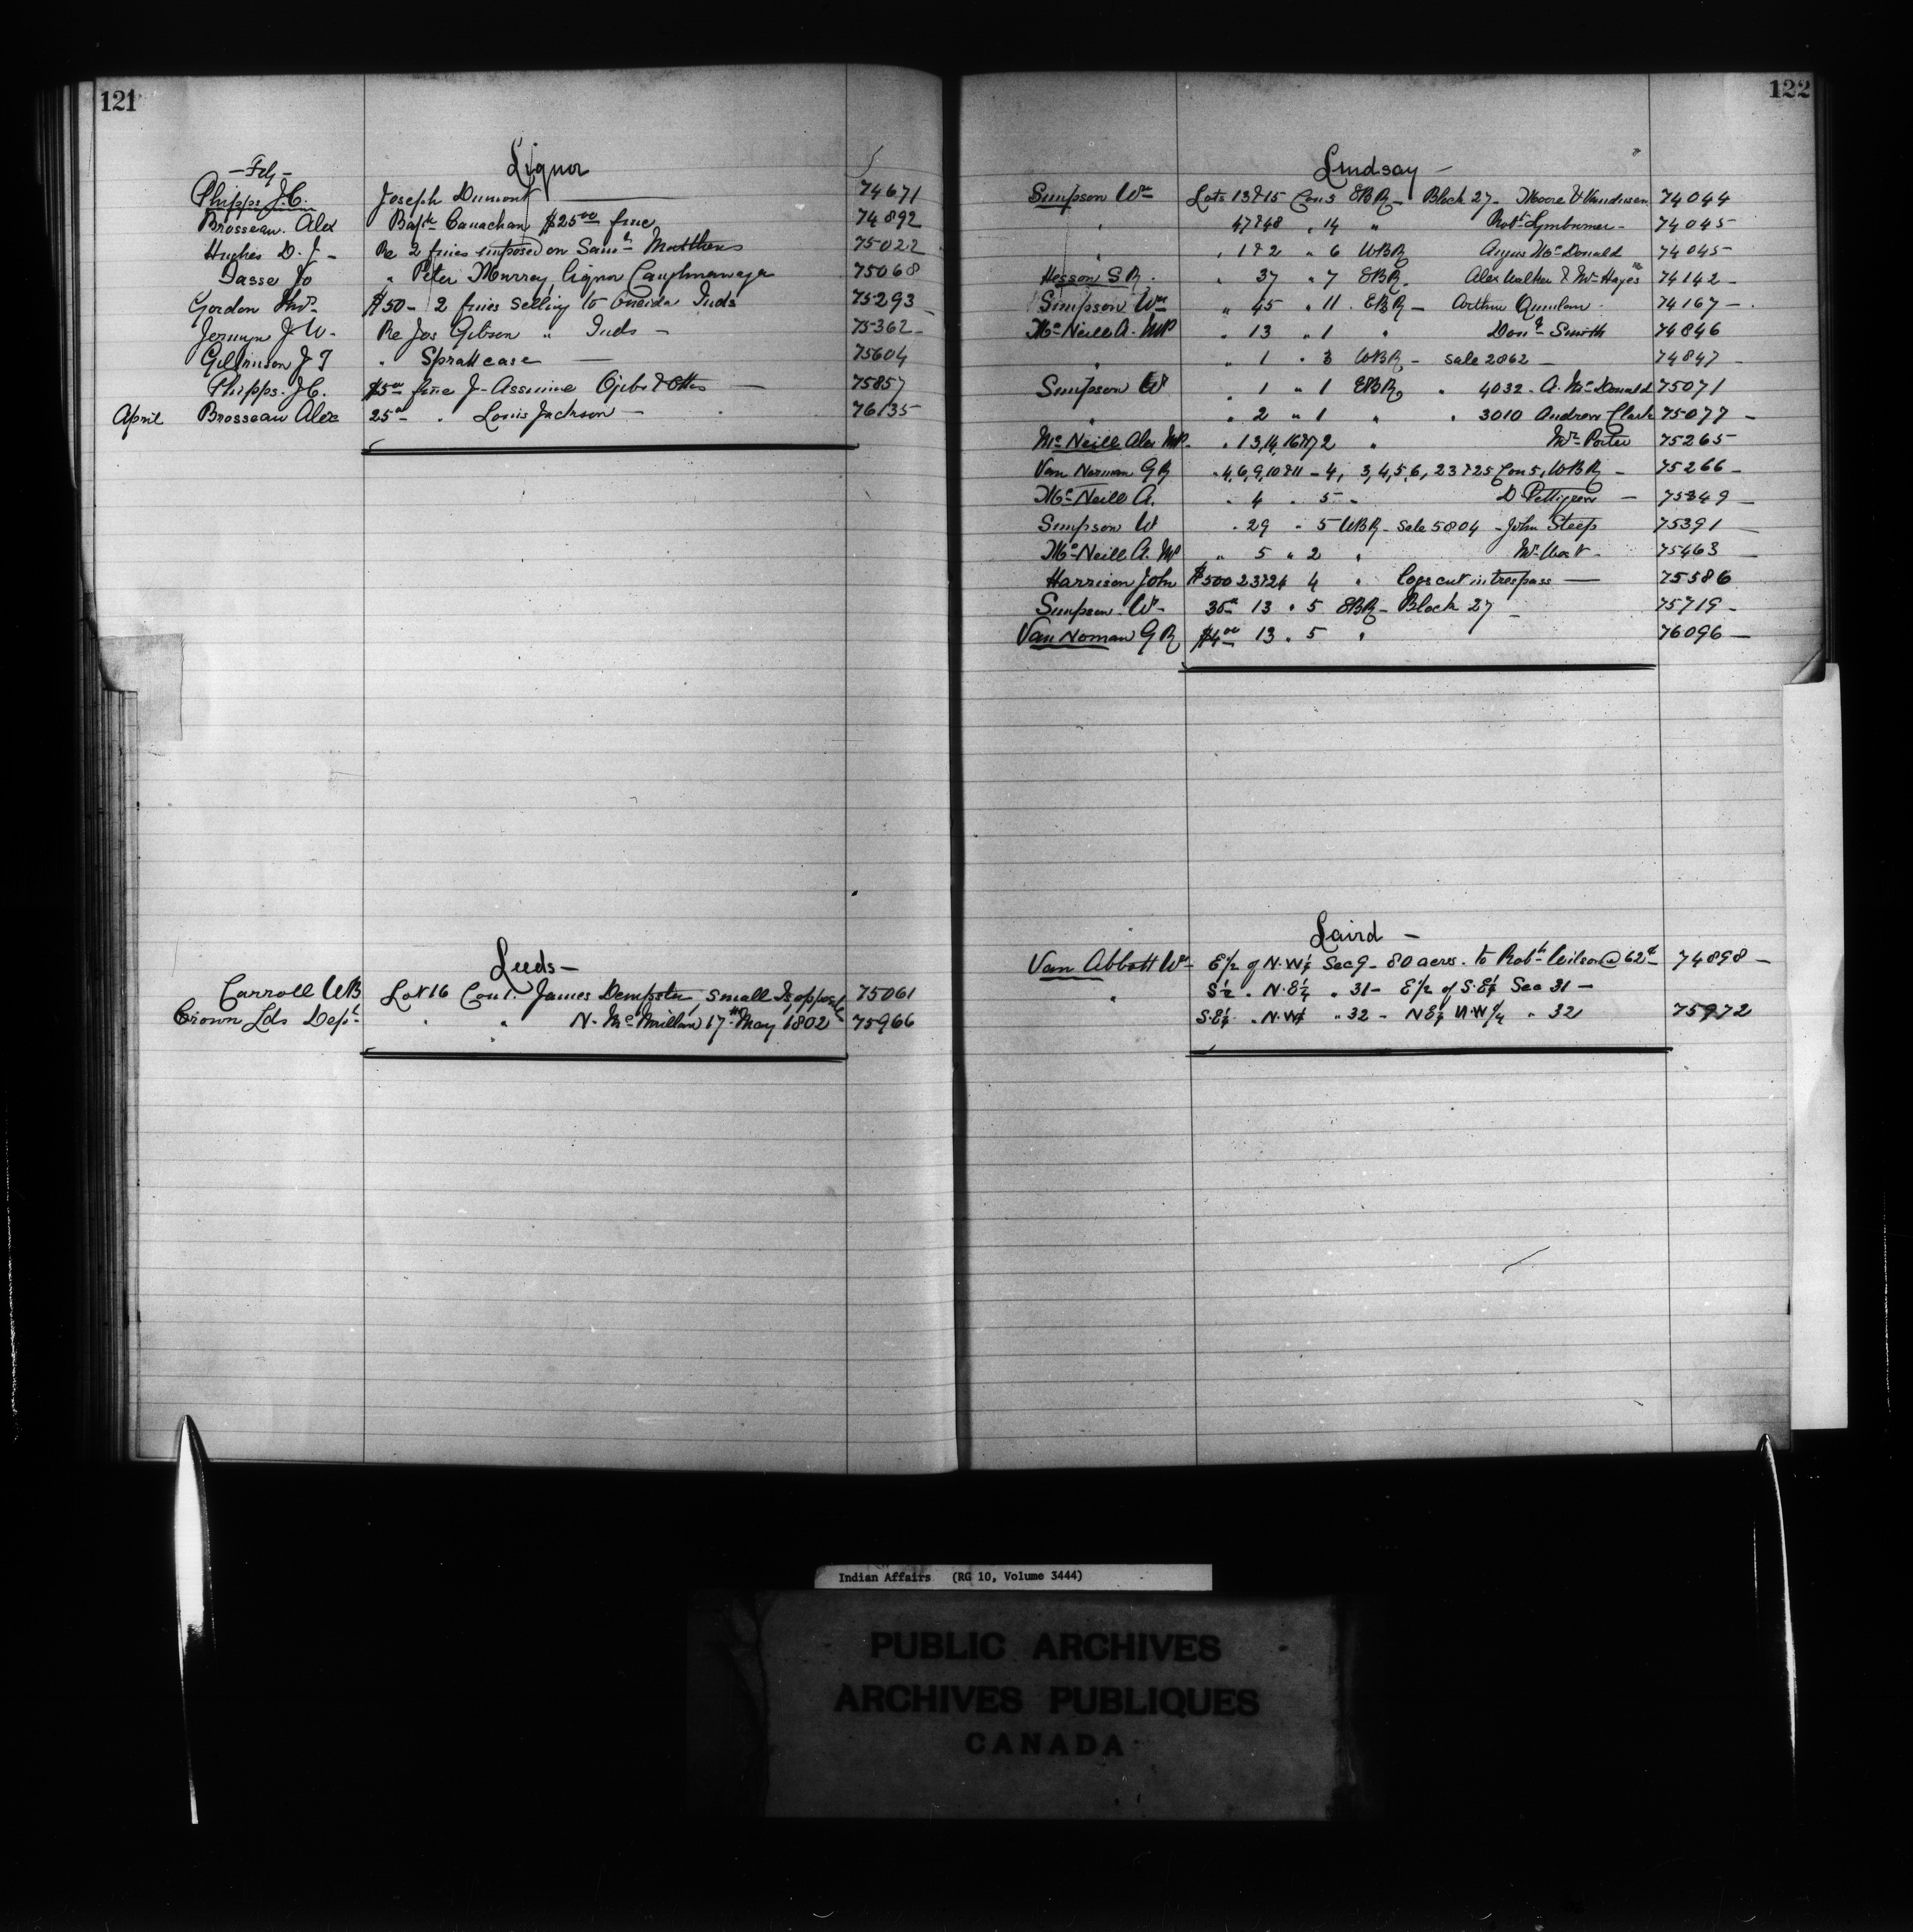 121
Liquor
— Feby —
Phipps J.C. Joseph Dumont 74671
Brosseau Alex Bapte Canachan $25.00 fine 74892
Hughes D. J — Re 2 fines imposed on Saml Matthews 75022
Dasse Jo " Peter Murray, Liquor Caughnawaga 75068
Gordon Thos $50 — 2 fines selling to Oneida Inds 75293
Jermyn J W — Re Jos Gibson " Inds — 75362
Gilkinson J T " Spratt case — 75604
Phipps J.C. $5.00 fine J — Assinine Ojibs & Ottas — 75857
April Brosseau Alex 25.00 " Louis Jackson — 76135
Leeds —
Carroll WB Lot 16 Con 1. James Dempster, Small Is opposite 75061
Crown Lds Dept " " N. McMillan 17th May 1802 75966
122
Lindsay —
Simpson Wm Lots 13 & 15 Con 3 EBR — Block 27 — Moore & Vandusen 74044
" 47 & 48 " 14 " Robt Lymburner — 74045
" 1 & 2 " 6 WBR Angus McDonald 74045
Hesson S R. " 37 " 7 EBR. Alex Walker & Wm Hayes 74142 —
Simpson Wm " 45 " 11. EBR — Arthur Quinlan 74167 —
McNeill A. MP " 13 " 1 " Dond Smith 74846
" " 1 " 3 WBR — Sale 2862 — 74847 —
Simpson W " 1 " 1 EBR " 4032 — A. McDonald 75071
" " 2 " 1 " " 3010 Andrew Clark 75077 —
McNeill Alex MP. " 13, 14, 16 & 17 2 " Mr Porter 75265 —
Van Norman G R " 4, 6, 9, 10 & 11 — 4, 3, 4, 5, 6, 23 & 25 Con 5, WBR — 75266 —
McNeill A. " 4 " 5 " D. Pettigrew — 75349 —
Simpson W " 29 " 5 WBR — Sale 5804 — John Steep 75391 —
McNeill A. MP " 5 " 2 " 75463 —
Harrison John $500 23 & 24 4 " Logs cut in trespass — 75586
Simpson W — 13 " 5 EBR — Block 27 — 75719 —
Van Noman G R $4.00 13 " 5 " 76096 —
Laird —
Van Abbott Wm E 1/2 of N.W 1/4 Sec 9 — 80 acres. to Robt Wilson @ 62c 74898 —
" S 1/2 " N.E 1/4 " 31 — E 1/2 of S.E 1/4 Sec 31 —
S.E 1/4 " N.W 1/4 " 32 — N E 1/4 N.W 1/4 " 32 75972
Indian Affairs (RG 10, Volume 3444)
PUBLIC ARCHIVES
ARCHIVES PUBLIQUES
CANADA